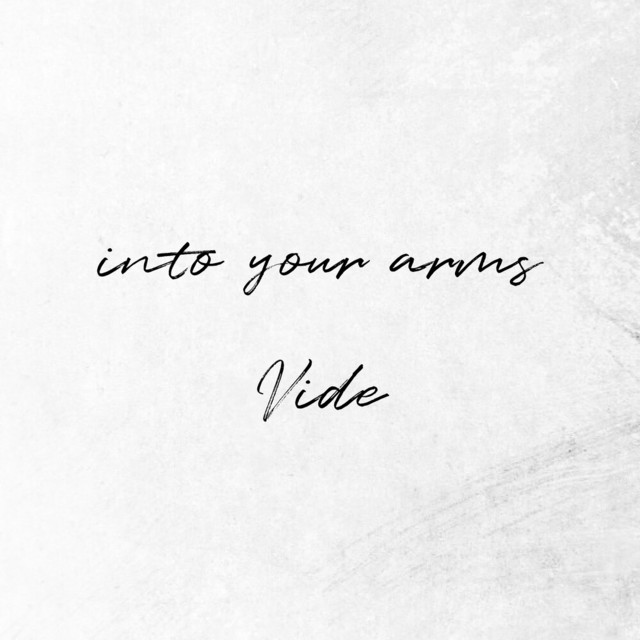 into your arms
Vide